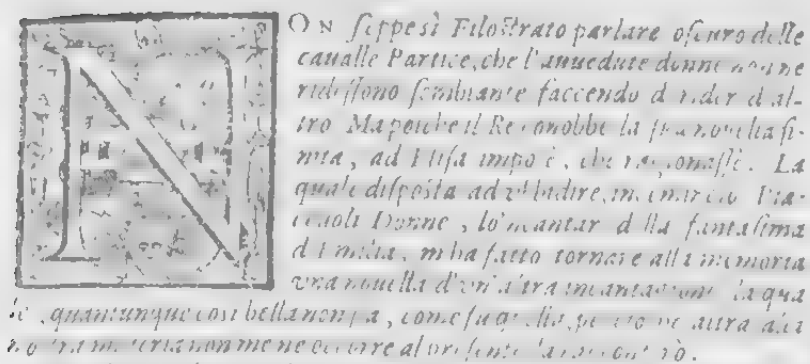 NON ſeppe sì Filoſtrato parlare oſcuro delle
caualle Partice, che l'auuedute donne non ne
ridiſſono ſembiante faccendo di rider d'al-
tro Ma poiche il Re conobbe la ſua nouella fi-
nita, ad Eliſa impoſe, che ragionaſſe. La
quale diſpoſta ad vbbidire, incominciò. Pia-
ceuoli Donne, lo'ncantar della fantaſima
d'Emilia, m'ha fatto tornare alla memoria
vna nouella d'vn'altra incantagione, la qua
le, quantunque coſi bella non ſia, come fu quella, per
non me ne occorre al preſente la racconterò.